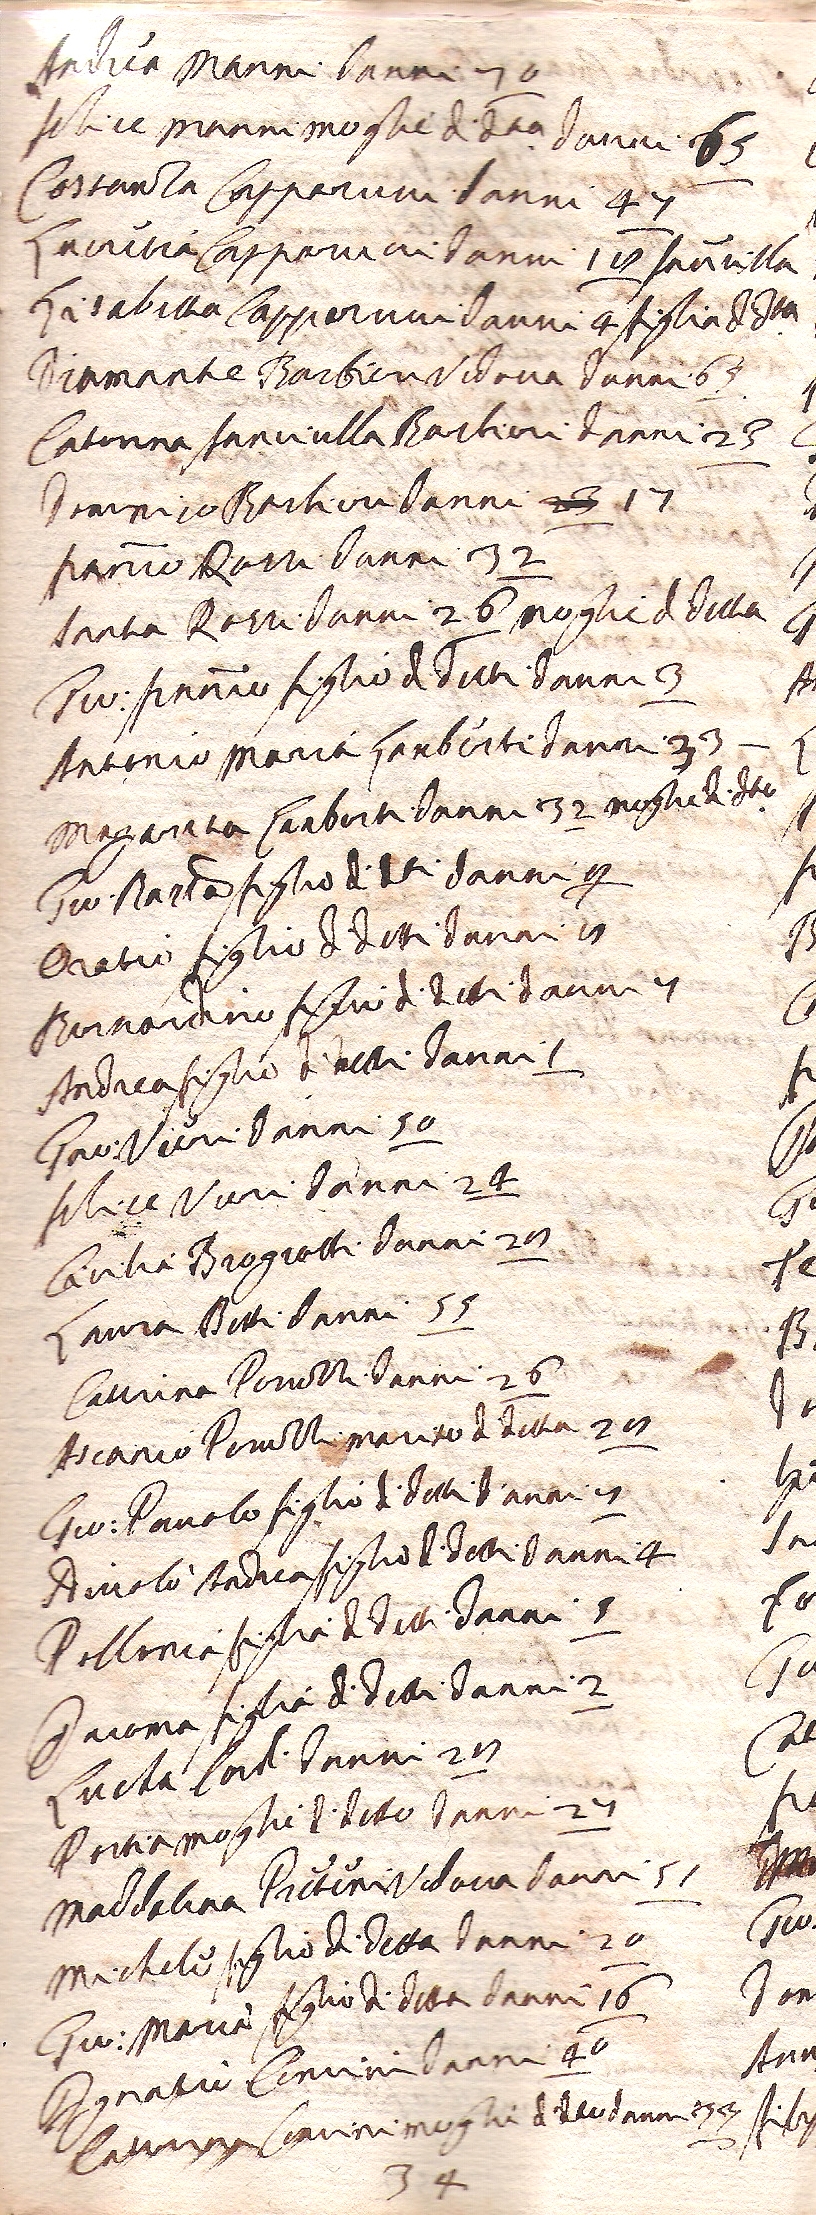 Andrea Manni d'anni 70
felice Manni moglie di dtta d'anni 65
Costanza Capparucci d'anni 47
Lucretia Capparucci d'anni 18 fanciulla
Lisabetta Capparucci d'anni 4 figlia di dtta
Diamante Barbieri Vidova d'anni 65
Caterina fanciulla Barbieri d'anni 23
Domenico Barbieri d'anni 23 17
franco Rossi d'anni 32
Santa Rossi d'anni 26 moglie di detto
Gio: franco figlio di detti d'anni 3
Antonio Maria Lanberti d'anni 33
Margarita Lanberti d'anni 32 moglie di dto
Gio. Batta figlio di dtti d'anni 9
Oratio figlio di detti d'anni 8
Bernardino figlio di detti d'anni 7
Andrea figlio di detti d'anni 1
Gio: Vieri d'anni 50
felice Vieri d'anni 24
Cicilia Brogiotti d'anni 28
Laura Betti d'anni 55
Caterina d'anni 26
Ascanio marito di detta 28
Gio: Pauolo figlio di detti d'anni 7
Nicolò Andrea figlio di detti d'anni 4
Pollonia figlia di detti d'anni 5
Jacoma figlia di detti d'anni 2
d'anni 28
Portia moglie di detto d'anni 27
Maddalena Vidova d'anni 51
Michele figlio di detta d'anni 20
Gio: Maria figlio di detta d'anni 16
Ignatio d'anni 40
Caterina moglie di detto d'anni 33
34